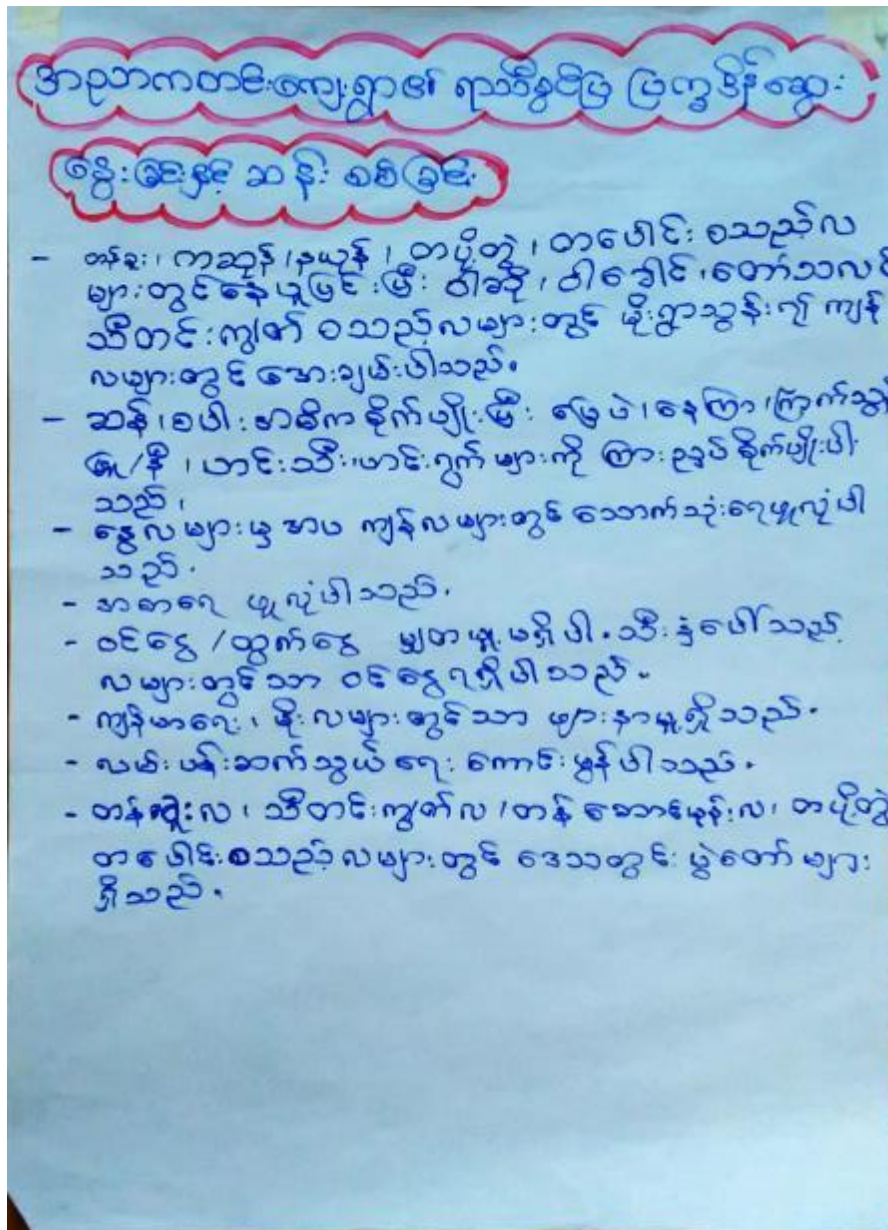 အညာကတင်းကျေးရွာ၏ ရာသီခွင်ပြ ပြက္ခဒိန်ဆွေး
နွေးခြင်းနှင့် ဆန်းစစ်ခြင်း
- တန်ခူး၊ ကဆုန်၊ နယုန်၊ တပို့တွဲ၊ တပေါင်း စသည့်လ
များတွင်နေပူပြင်းပြီး ဝါဆို၊ ဝါခေါင်၊ တော်သလင်း
သီတင်းကျွတ် စသည့်လများတွင် မိုးရွာသွန်း၍ ကျန်
လများတွင် အေးချမ်းပါသည်။
- ဆန်၊ စပါး အဓိကစိုက်ပျိုးပြီး မြေပဲ၊ နေကြာ၊ ကြက်သွန်
ဖြူ/နီ၊ ဟင်းသီးဟင်းရွက်များကို ကြားညှပ်စိုက်ပျိုးပါ
သည်၊
- နွေလများမှအပ ကျန်လများတွင် သောက်သုံးရေဖူလုံပါ
သည်.
- အစာရေ ဖူလုံပါသည်.
- ဝင်ငွေ/ထွက်ငွေ မျှတမှု မရှိပါ. သီးနှံပေါ်သည့်
လများတွင်သာ ဝင်ငွေရရှိပါသည်.
- ကျန်မာရေး၊ မိုးလများတွင်သာ ဖျားနာမှုရှိသည်.
- လမ်းပန်းဆက်သွယ်ရေး ကောင်းမွန်ပါသည်.
- တန်ခူးလ၊ သီတင်းကျွတ်လ၊ တန်ဆောင်မုန်းလ၊ တပို့တွဲ
တပေါင်းစသည့်လများတွင် ဒေသတွင်း ပွဲတော်များ
ရှိသည်.